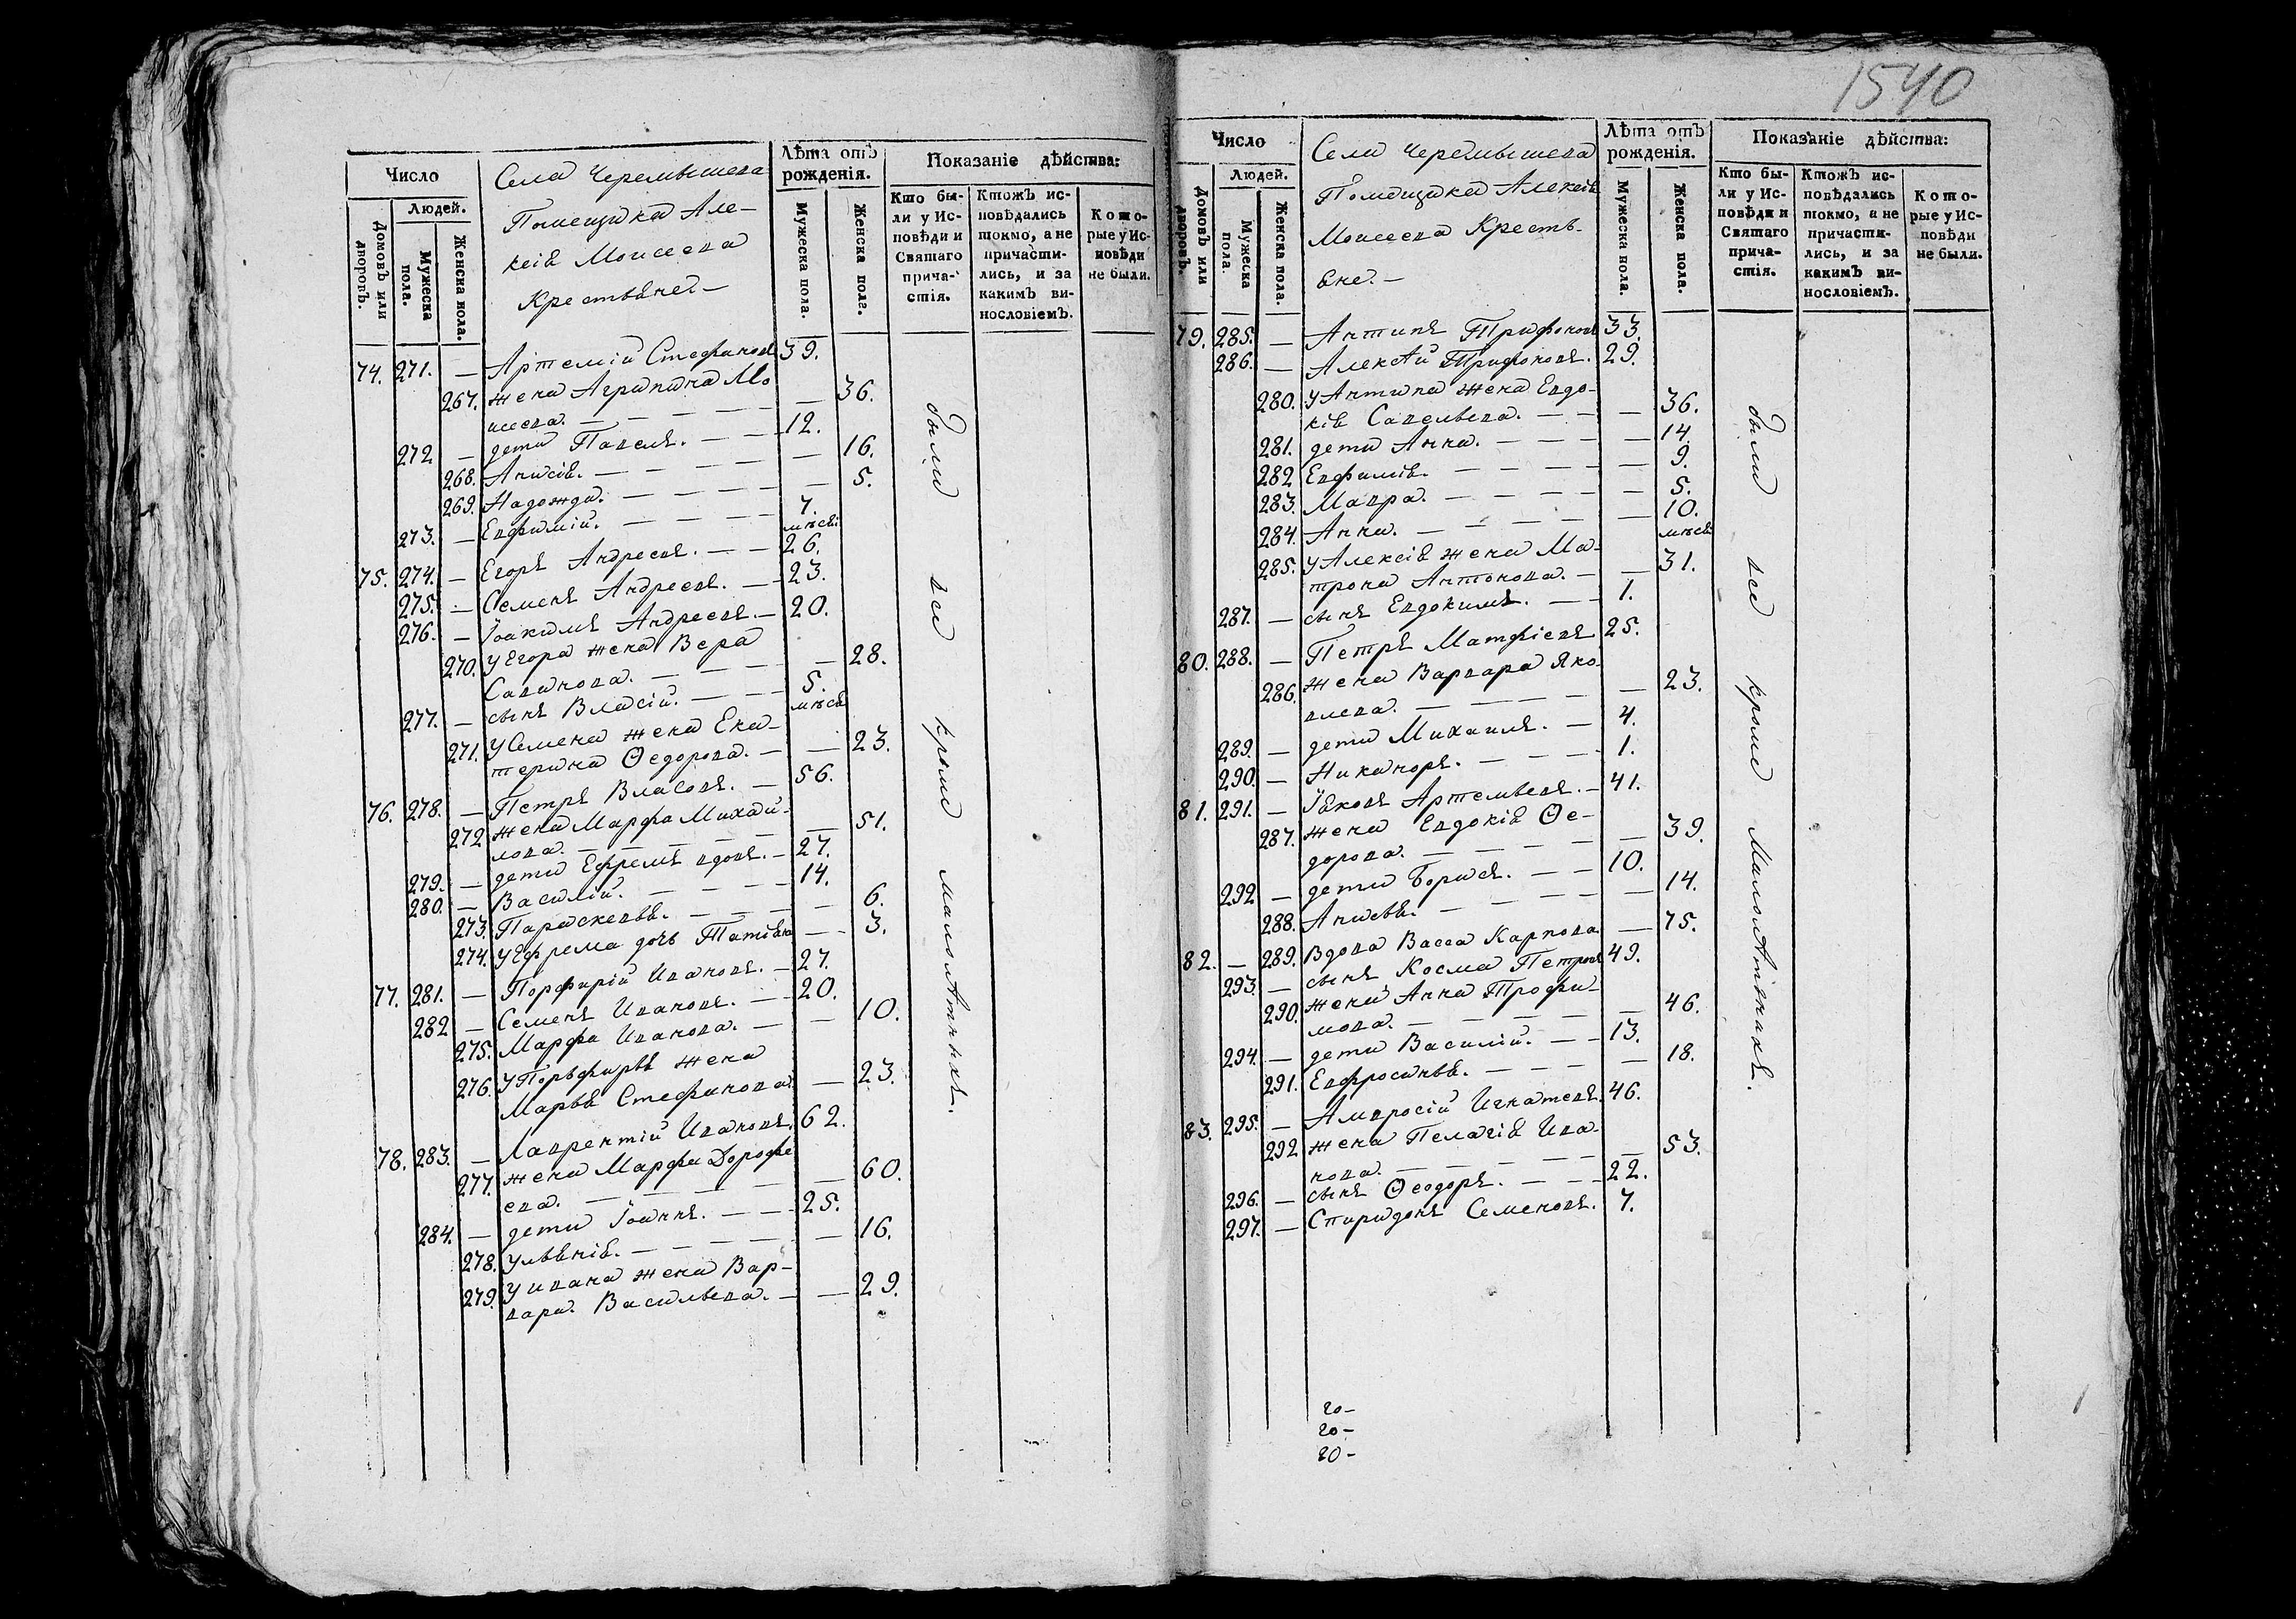 Число
Людей.
Домовъ или дворовъ.
Мужеска пола.
Женска пола.
Села Черемышева
Помещика Але-
ксѣя Моисеева
Крестьяне. –
Лѣта отъ рожденія.
Мужеска пола.
Женска пола.
Показаніе дѣйства:
Кто бы-
ли у Ис-
повѣди и
Святаго
прича-
стія.
Ктожъ ис-
повѣдались
токмо, а не
причасти-
лись, и за
какимъ ви-
нословіемъ.
Кото-
рые у Ис-
повѣди
не были.
74. 271. — Артемій Стефановъ 39.
267. жена Агрипина Мо
исеева. — — — — — 36.
272 — дети Павелъ. — — 12.
268. Анисія. — — — — — 16.
269. Надожда. — — — — — 5.
273. — Евфимій. — — — — 7. мѣсѧ:
75. 274. — Егоръ Андреевъ. — — 26.
275. — Семенъ Андреевъ. — — 23.
276. — Іоакимъ Андреевъ. — 20.
270. У Егора жена Вера
Савинова. — — — — 28.
277. — сынъ Власій. — — — 5. мѣсѧ
271. У Семена жена Ека-
терина Ѳедорова. — — 23.
76. 278. — Петръ Власовъ. — 56.
272 жена Марфа Михай-
лова. — — — — — 51.
279. — дети Ефремъ вдовъ. — 27.
280. — Василій. — — — — 14.
273. Параскевья. — — — — 6.
274. У Ефрема дочь Татіяна — 3.
77. 281. — Порфирій Ивановъ. — 27.
282 — Семенъ Ивановъ. — — 20.
275. Марфа Иванова. — — 10.
276. У Порьфирья жена
Марья Стефанова — 23.
78. 283. — Лаврентій Ивановъ. 62.
277. жена Марфа Дорофе
ева. — — — — — 60.
284. — дети Іоаннъ. — — — 25.
278. Ульянія. — — — — — 16.
279. У ивана жена Вар-
вара Васильева. — — 29.
были все кроме малолѣтнихъ.
1540
Число
Людей.
Домовъ или дворовъ.
Мужеска пола.
Женска пола.
Села Черемышева
Помещика Алексѣя
Моисеева Кресть-
яне. –
Лѣта отъ рожденія.
Мужеска пола.
Женска пола.
Показаніе дѣйства:
Кто бы-
ли у Ис-
повѣди и
Святаго
прича-
стія.
Ктожъ ис-
повѣдались
токмо, а не
причасти-
лись, и за
какимъ ви-
нословіемъ.
Кото-
рые у Ис-
повѣди
не были.
79. 285. — Антипъ Трифоновъ 33.
286. — Алексѣй Трифоновъ. 29.
280. У Антипа жена Евдо-
кія Савельева. — — — 36.
281. дети Анна. — — — — 14.
282 Евфимія. — — — — — 9.
283. Мавра. — — — — — 5.
284. Анна. — — — — — 10. мѣсѧ
285. У Алексія жена Ма-
трона Антонова. — — 31.
287. — сынъ Евдокимъ. — — 1.
80. 288. — Петръ Матфіевъ 25.
286. жена Варвара Яко
влева. — — — — 23.
289. — дети Михаилъ. — 4.
290. — Никаноръ. — — — 1.
81. 291. — Іяковъ Артемьевъ. — 41.
287. жена Евдокія Ѳе-
дорова. — — — — — 39.
292 — дети Борисъ. — — 10.
288. Анисья. — — — — — 14.
82. — 289. Вдова Васса Карпова — 75.
293. — сынъ Косма Петровъ 49.
290. жена Анна Трофи-
мова. — — — — — 46.
294. — дети Василій. — — 13.
291. Евфросинья. — — — — 18.
83. 295. — Амвросій Игнатевъ. 46.
292 жена Пелагія Ива-
нова. — — — — — 53.
296. — сынъ Ѳеодоръ. — — 22.
297. — Спиридонъ Семеновъ. 7.
были все кроме малолѣтныхъ.
20 –
20 –
20 –